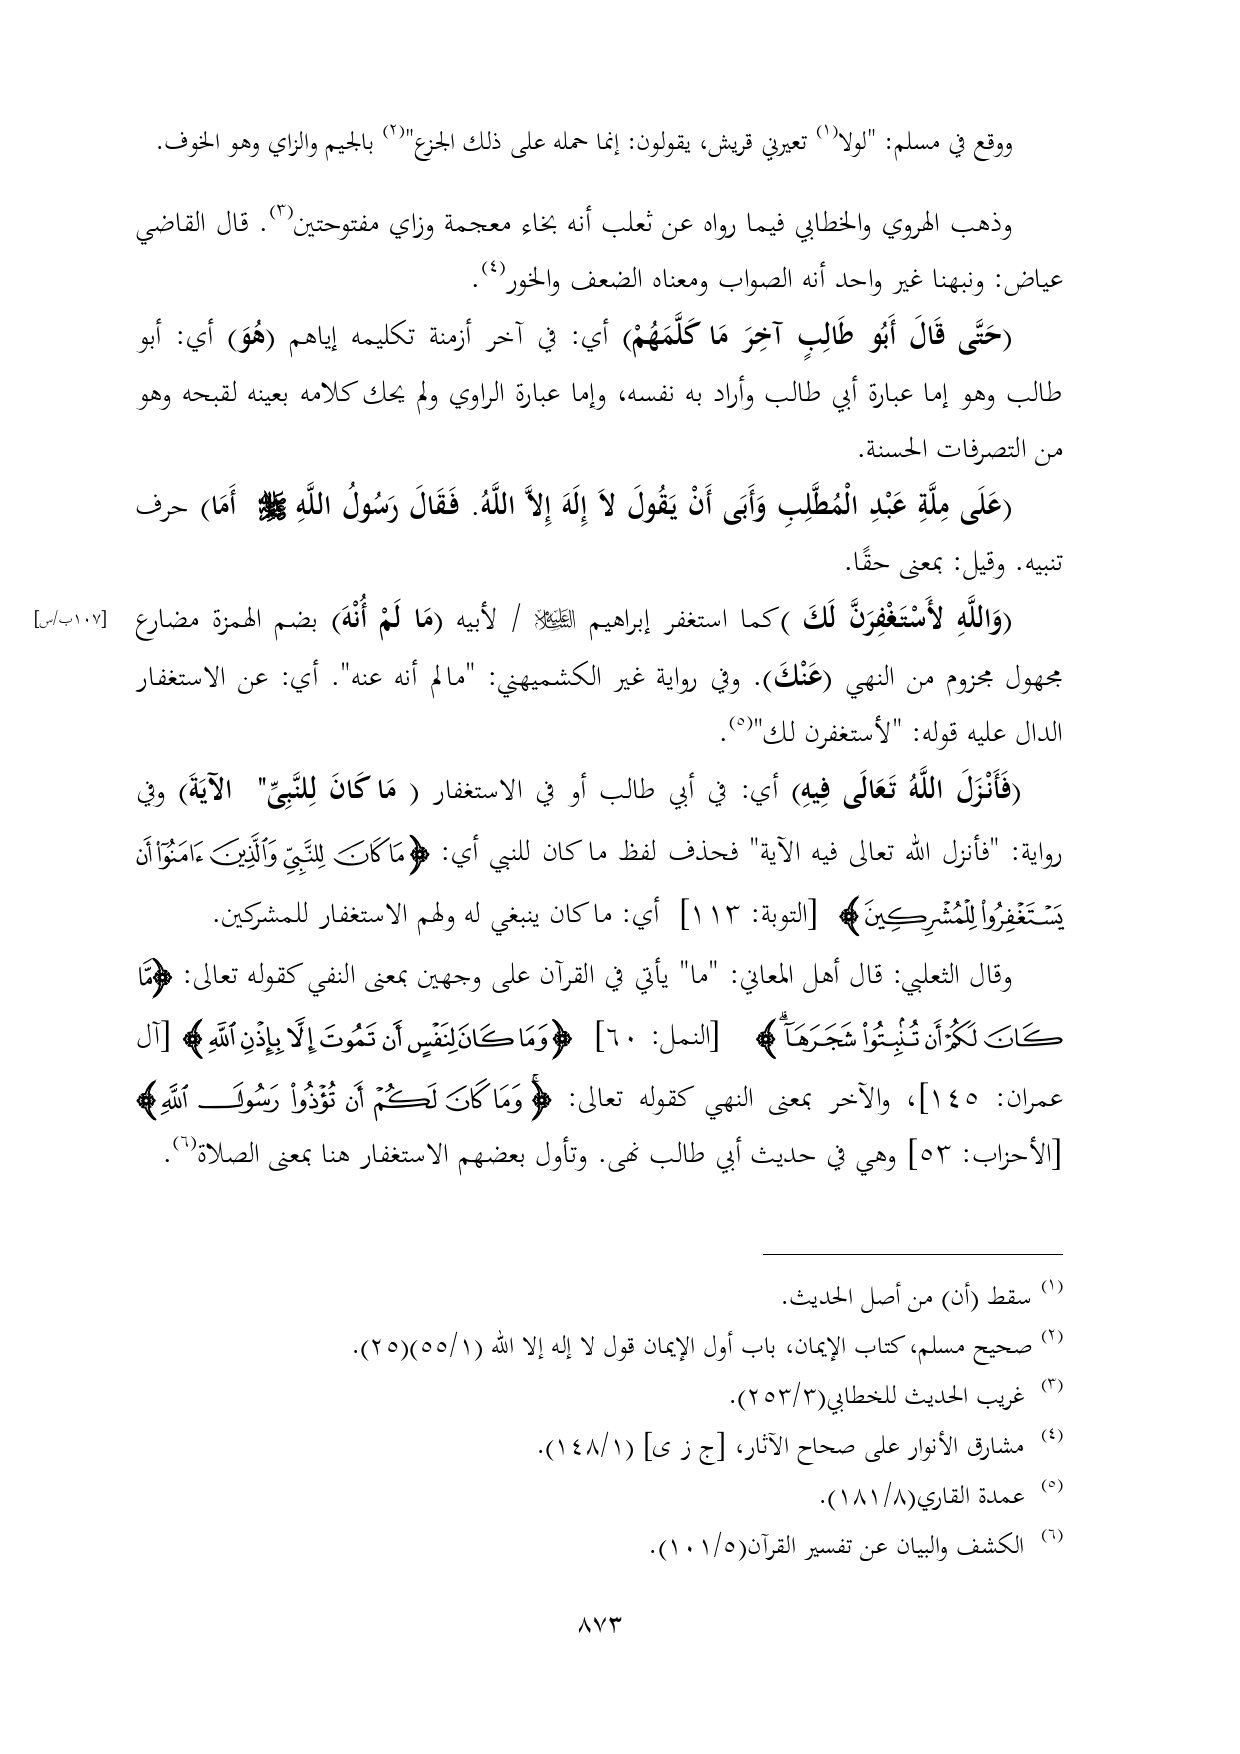 ووقع في مسلم: "لولا(١) تعيرني قريش، يقولون: إنما حمله على ذلك الجزع"(٢) بالجيم والزاي وهو الخوف.
وذهب الهروي والخطابي فيما رواه عن ثعلب أنه بخاء معجمة وزاي مفتوحتين(٣). قال القاضي
عياض: ونبهنا غير واحد أنه الصواب ومعناه الضعف والخور(٤).
(حَتَّى قَالَ أَبُو طَالِبٍ آخِرَ مَا كَلَّمَهُمْ) أي: في آخر أزمنة تكليمه إياهم (هُوَ) أي: أبو
طالب وهو إما عبارة أبي طالب وأراد به نفسه، وإما عبارة الراوي ولم يحك كلامه بعينه لقبحه وهو
من التصرفات الحسنة.
(عَلَى مِلَّةِ عَبْدِ الْمُطَّلِبِ وَأَبَى أَنْ يَقُولَ لاَ إِلَهَ إِلاَّ اللَّهُ. فَقَالَ رَسُولُ اللَّهِ ﷺ أَمَا) حرف
تنبيه. وقيل: بمعنى حقًا.
(وَاللَّهِ لأَسْتَغْفِرَنَّ لَكَ )كما استغفر إبراهيم عليه السلام / لأبيه (مَا لَمْ أُنْهَ) بضم الهمزة مضارع [١٠٧ب/س]
مجهول مجزوم من النهي (عَنْكَ). وفي رواية غير الكشميهني: "مالم أنه عنه". أي: عن الاستغفار
الدال عليه قوله: "لأستغفرن لك"(٥).
(فَأَنْزَلَ اللَّهُ تَعَالَى فِيهِ) أي: في أبي طالب أو في الاستغفار ( مَا كَانَ لِلنَّبِيِّ" الآيَةَ) وفي
رواية: "فأنزل الله تعالى فيه الآية" فحذف لفظ ما كان للنبي أي: ﴿مَا كَانَ لِلنَّبِيِّ وَٱلَّذِينَ ءَامَنُوٓا۟ أَن
يَسْتَغْفِرُوا۟ لِلْمُشْرِكِينَ﴾ [التوبة: ١١٣] أي: ما كان ينبغي له ولهم الاستغفار للمشركين.
وقال الثعلبي: قال أهل المعاني: "ما" يأتي في القرآن على وجهين بمعنى النفي كقوله تعالى: ﴿مَّا
كَانَ لَكُمْ أَن تُنۢبِتُوا۟ شَجَرَهَآ ۗ﴾ [النمل: ٦٠] ﴿وَمَا كَانَ لِنَفْسٍ أَن تَمُوتَ إِلَّا بِإِذْنِ ٱللَّهِ﴾ [آل
عمران: ١٤٥]، والآخر بمعنى النهي كقوله تعالى: ﴿ۚ وَمَا كَانَ لَكُمْ أَن تُؤْذُوا۟ رَسُولَ ٱللَّهِ﴾
[الأحزاب: ٥٣] وهي في حديث أبي طالب نهى. وتأول بعضهم الاستغفار هنا بمعنى الصلاة(٦).
(١) سقط (أن) من أصل الحديث.
(٢) صحيح مسلم،كتاب الإيمان، باب أول الإيمان قول لا إله إلا الله (٥٥/١)(٢٥).
(٣) غريب الحديث للخطابي(٢٥٣/٣).
(٤) مشارق الأنوار على صحاح الآثار، [ج ز ى] (١٤٨/١).
(٥) عمدة القاري(١٨١/٨).
(٦) الكشف والبيان عن تفسير القرآن(١٠١/٥).
٨٧٣